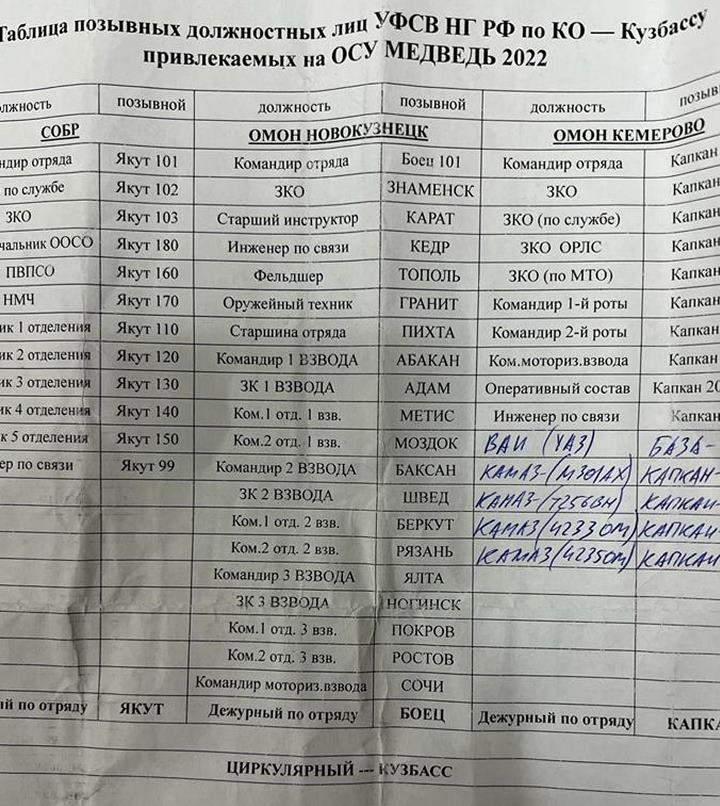 Таблица позывных должностных лиц УФСВ НГ РФ по КО — Кузбассу
привлекаемых на ОСУ МЕДВЕДЬ 2022
позывной должность позывной должность
СОБР ОМОН НОВОКУЗНЕЦК ОМОН КЕМЕРОВО
отряда Якут 101 Командир отряда Боец 101 Командир отряда Капкан
по службе Якут 102 ЗКО ЗНАМЕНСК ЗКО Капкан
ЗКО Якут 103 Старший инструктор КАРАТ ЗКО (по службе) Капкан
ООСО Якут 180 Инженер по связи КЕДР ЗКО ОРЛС Капкан
ПВПСО Якут 160 Фельдшер ТОПОЛЬ ЗКО (по МТО) Капкан
НМЧ Якут 170 Оружейный техник ГРАНИТ Командир 1-й роты Капкан
1 отделения Якут 110 Старшина отряда ПИХТА Командир 2-й роты Капкан
2 отделения Якут 120 Командир 1 ВЗВОДА АБАКАН Ком.моториз.взвода Капкан
3 отделения Якут 130 ЗК 1 ВЗВОДА АДАМ Оперативный состав Капкан 20
4 отделения Якут 140 Ком.1 отд. 1 взв. МЕТИС Инженер по связи Капкан
5 отделения Якут 150 Ком.2 отд. 1 взв. МОЗДОК ВАИ (УАЗ) БАЗА-
по связи Якут 99 Командир 2 ВЗВОДА БАКСАН КАМАЗ-(М301АХ) КАПКАН-
ЗК 2 ВЗВОДА ШВЕД КАМАЗ- КАПКАН-
Ком.1 отд. 2 взв. БЕРКУТ КАМАЗ(4233ОМ) КАПКАН-
Ком.2 отд. 2 взв. РЯЗАНЬ КАМАЗ(4235ОМ) КАПКАН
Командир 3 ВЗВОДА ЯЛТА
ЗК 3 ВЗВОДА НОГИНСК
Ком.1 отд. 3 взв. ПОКРОВ
Ком.2 отд. 3 взв. РОСТОВ
Командир моториз.взвода СОЧИ
по отряду ЯКУТ Дежурный по отряду БОЕЦ Дежурный по отряду КАПКА
ЦИРКУЛЯРНЫЙ --- КУЗБАСС